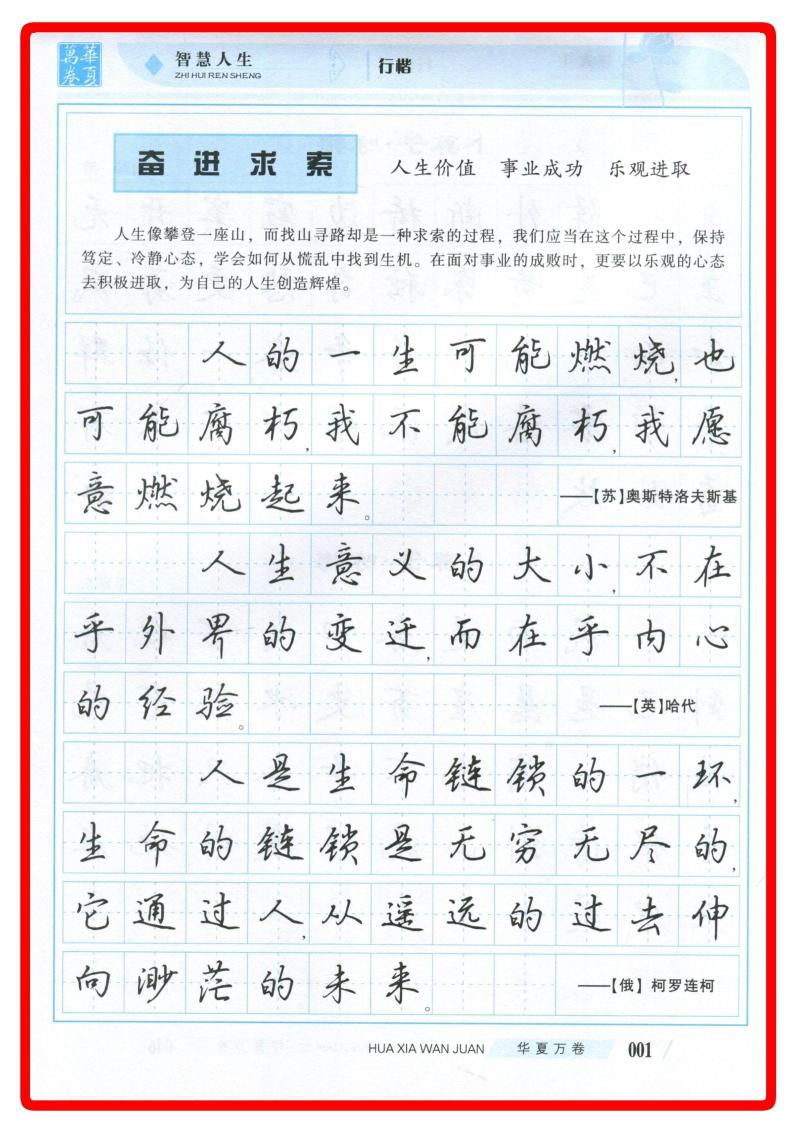 華夏
萬卷
智慧人生
ZHI HUI REN SHENG
行楷
奋进求索
人生价值 事业成功 乐观进取
人生像攀登一座山，而找山寻路却是一种求索的过程，我们应当在这个过程中，保持
笃定、冷静心态，学会如何从慌乱中找到生机。在面对事业的成败时，更要以乐观的心态
去积极进取，为自己的人生创造辉煌。
人的一生可能燃烧,也
可能腐朽,我不能腐朽,我愿
意燃烧起来。
——【苏】奥斯特洛夫斯基
人生意义的大小,不在
乎外界的变迁,而在乎内心
的经验。
——【英】哈代
人是生命链锁的一环,
生命的链锁是无穷无尽的,
它通过人,从遥远的过去伸
向渺茫的未来。
——【俄】柯罗连柯
HUA XIA WAN JUAN
华夏万卷
001